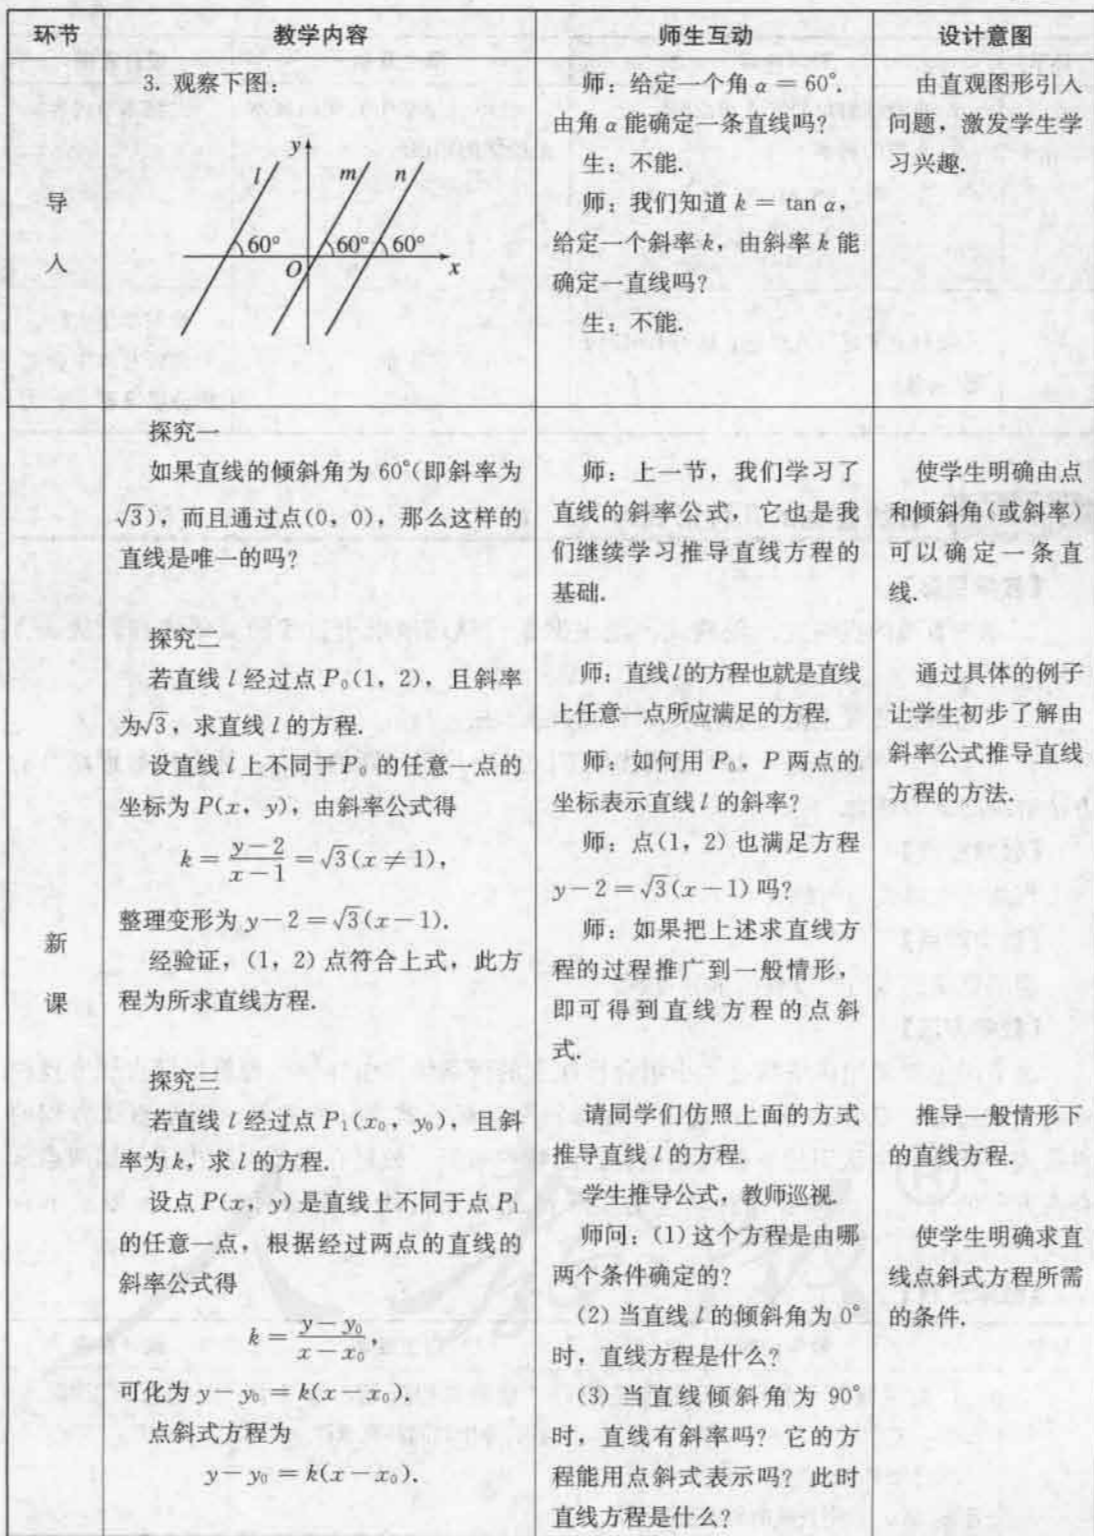 环节
教学内容
师生互动
设计意图
导
入
3. 观察下图:
y
l
m
n
60°
60°
60°
O
x
师：给定一个角 α = 60°.
由角 α 能确定一条直线吗?
生：不能.
师：我们知道 k = tan α，
给定一个斜率 k，由斜率 k 能
确定一直线吗?
生：不能.
由直观图形引入
问题，激发学生学
习兴趣.
新
课
探究一
如果直线的倾斜角为 60°(即斜率为
√3)，而且通过点(0，0)，那么这样的
直线是唯一的吗?
探究二
若直线 l 经过点 P₀(1，2)，且斜率
为√3，求直线 l 的方程.
设直线 l 上不同于 P₀ 的任意一点的
坐标为 P(x，y)，由斜率公式得
k = (y−2)/(x−1) = √3(x ≠ 1)，
整理变形为 y−2 = √3(x−1).
经验证，(1，2) 点符合上式，此方
程为所求直线方程.
探究三
若直线 l 经过点 P₁(x₀，y₀)，且斜
率为 k，求 l 的方程.
设点 P(x，y) 是直线上不同于点 P₁
的任意一点，根据经过两点的直线的
斜率公式得
k = (y−y₀)/(x−x₀)，
可化为 y−y₀ = k(x−x₀).
点斜式方程为
y−y₀ = k(x−x₀).
师：上一节，我们学习了
直线的斜率公式，它也是我
们继续学习推导直线方程的
基础.
师：直线 l 的方程也就是直线
上任意一点所应满足的方程.
师：如何用 P₀，P 两点的
坐标表示直线 l 的斜率?
师：点(1，2) 也满足方程
y−2 = √3(x−1) 吗?
师：如果把上述求直线方
程的过程推广到一般情形，
即可得到直线方程的点斜
式.
请同学们仿照上面的方式
推导直线 l 的方程.
学生推导公式，教师巡视.
师问：(1) 这个方程是由哪
两个条件确定的?
(2) 当直线 l 的倾斜角为 0°
时，直线方程是什么?
(3) 当直线倾斜角为 90°
时，直线有斜率吗? 它的方
程能用点斜式表示吗? 此时
直线方程是什么?
使学生明确由点
和倾斜角(或斜率)
可以确定一条直
线.
通过具体的例子
让学生初步了解由
斜率公式推导直线
方程的方法.
推导一般情形下
的直线方程.
使学生明确求直
线点斜式方程所需
的条件.